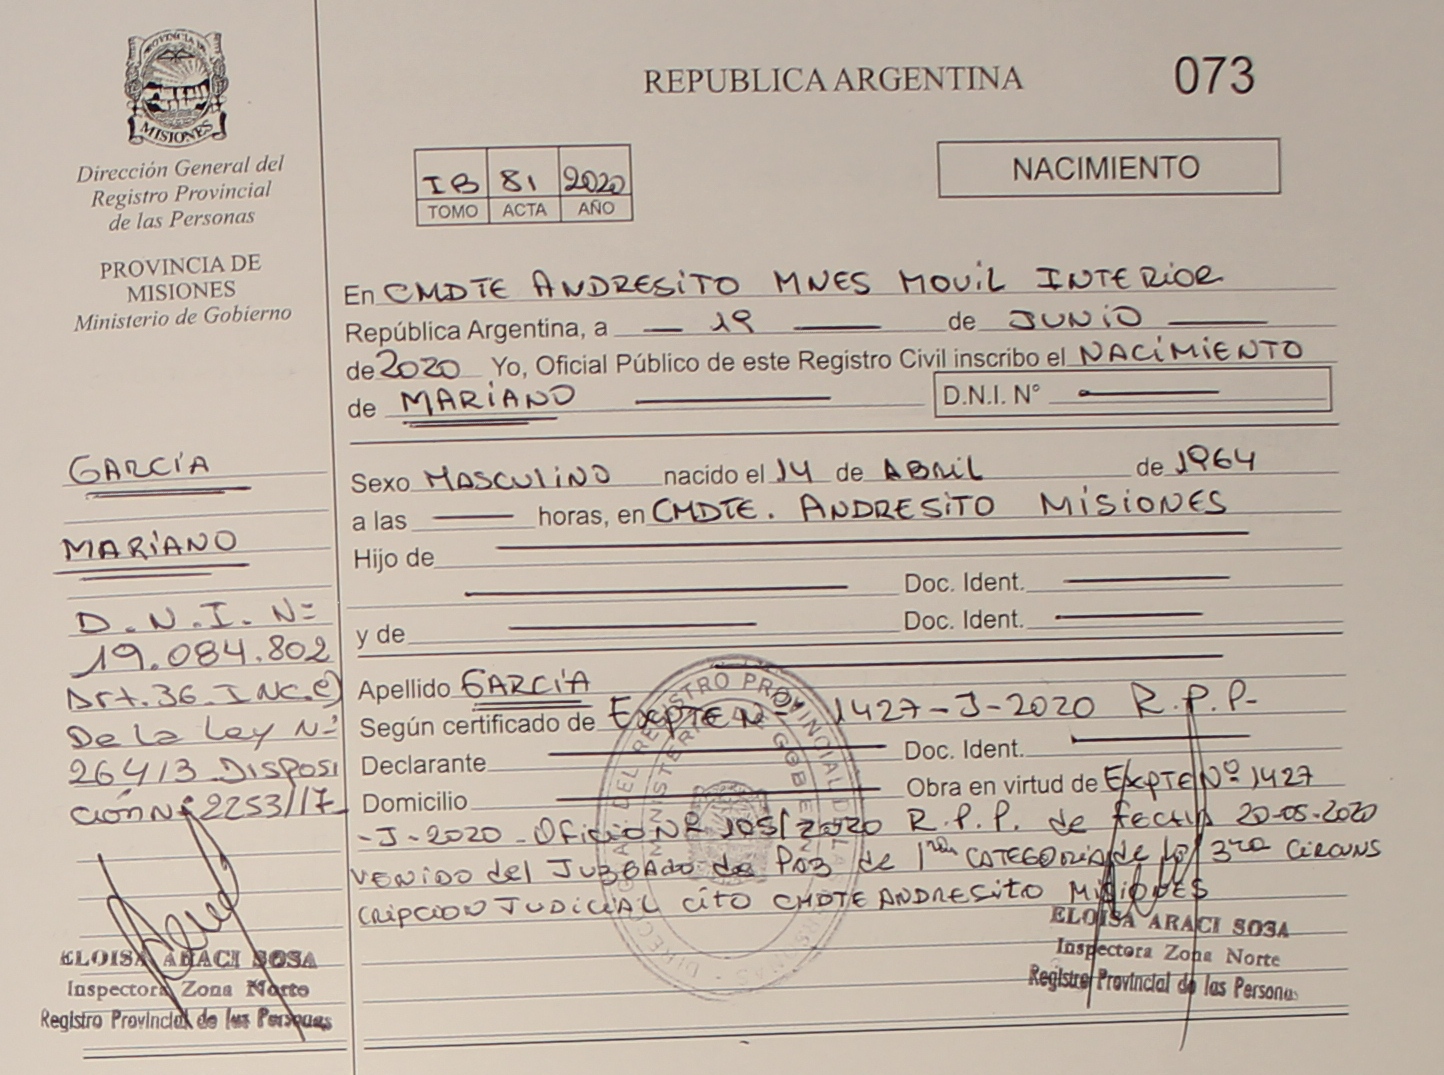 PROVINCIA DE
MISIONES
Dirección General del
Registro Provincial
de las Personas
PROVINCIA DE
MISIONES
Ministerio de Gobierno
REPUBLICA ARGENTINA
073
IB 81 2020
TOMO ACTA AÑO
NACIMIENTO
En CMDTE ANDRESITO MNES MOVIL INTERIOR
República Argentina, a 19 de JUNIO
de 2020 Yo, Oficial Público de este Registro Civil inscribo el NACIMIENTO
de MARIANO D.N.I. N°
Sexo MASCULINO nacido el 14 de ABRIL de 1964
a las horas, en CMDTE. ANDRESITO MISIONES
Hijo de
Doc. Ident.
y de Doc. Ident.
Apellido GARCIA
Según certificado de EXPTE Nº 1427-J-2020 R.P.P-
Declarante Doc. Ident.
Domicilio Obra en virtud de EXPTE Nº 1427
-J-2020-Oficio Nº 105/2020 R.P.P. de FECHA 20-05-2020
VENIDO del JUZGADO de PAZ de 1ra CATEGORIA de la 3ra CIRCUNS
CRIPCION JUDICIAL CITO CMDTE ANDRESITO MISIONES
ELOISA ARACI SOSA
Inspectora Zona Norte
Registro Provincial de las Personas
GARCÍA
MARIANO
D.N.I. Nº
19.084.802
Art.36 INC.C)
De La Ley Nº
26413 DISPOSI
CIÓN Nº 2253/17-
ELOISA ARACI SOSA
Inspectora Zona Norte
Registro Provincial de las Personas